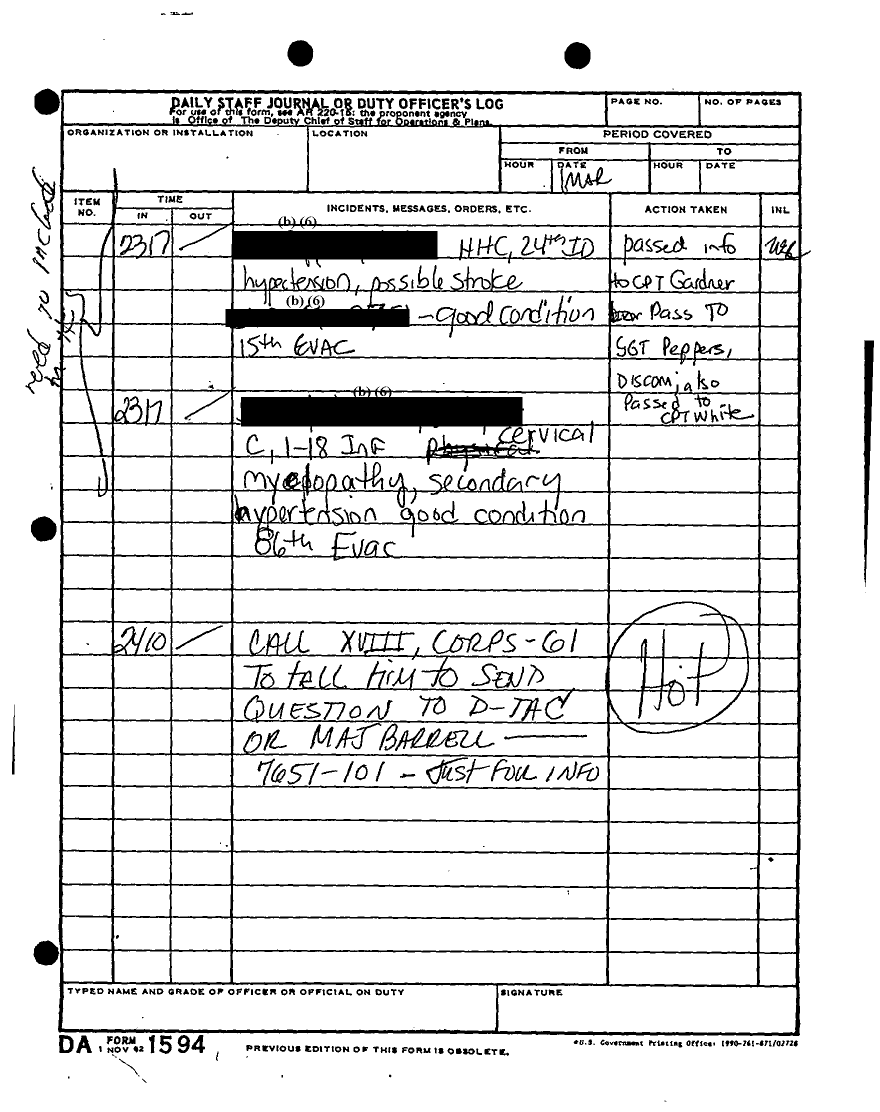 DAILY STAFF JOURNAL OR DUTY OFFICER'S LOG
For use of this form, see AR 220-15; the proponent agency
is Office of The Deputy Chief of Staff for Operations & Plans.
PAGE NO.
NO. OF PAGES
ORGANIZATION OR INSTALLATION
LOCATION
PERIOD COVERED
FROM
TO
HOUR
DATE
HOUR
DATE
MAR
ITEM NO.
TIME
IN
OUT
INCIDENTS, MESSAGES, ORDERS, ETC.
ACTION TAKEN
INL
need to include
(b)(6)
2317 HHC, 24th ID passed info
hypertension, possible stroke to CPT Gardner
(b)(6)
- good condition Pass TO
15th EVAC SGT Peppers,
DISCOM, also
(b)(6)
2317 Passed to
CPT White
C, 1-18 Inf cervical
myelopathy, secondary
hypertension good condition
86th Evac
2410 CALL XVIII, CORPS-G1
TO tELL HIM TO SEND
QUESTION TO D-TAC
OR MAJ BARRELL
7651-101 - JUST FOR INFO
HOT
TYPED NAME AND GRADE OF OFFICER OR OFFICIAL ON DUTY
SIGNATURE
DA FORM 1 NOV 62 1594
PREVIOUS EDITION OF THIS FORM IS OBSOLETE.
*U.S. Government Printing Office: 1990-261-871/02728